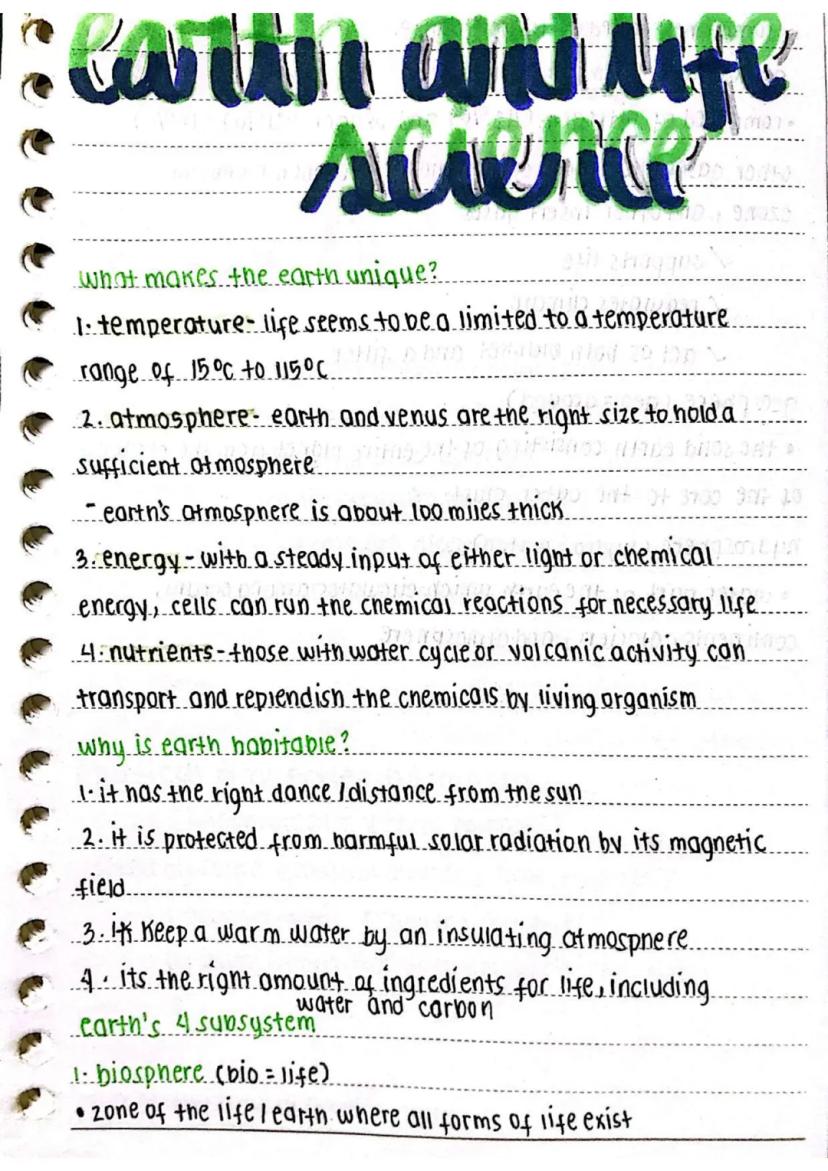 earth and life
science
what makes the earth unique?
1. temperature- life seems to be a limited to a temperature
range of 15°C to 115°C
2. atmosphere- earth and venus are the right size to hold a
sufficient atmosphere
- earth's atmosphere is about 100 miles thick
3. energy - with a steady input of either light or chemical
energy, cells can run the chemical reactions for necessary life
4. nutrients - those with water cycle or volcanic activity can
transport and replendish the chemicals by living organism
why is earth habitable?
1. it has the right dance / distance from the sun
2. it is protected from harmful solar radiation by its magnetic
field
3. it keep a warm water by an insulating atmosphere
4. its the right amount of ingredients for life, including
water and carbon
earth's 4 subsystem
1. biosphere (bio = life)
• zone of the life / earth where all forms of life exist